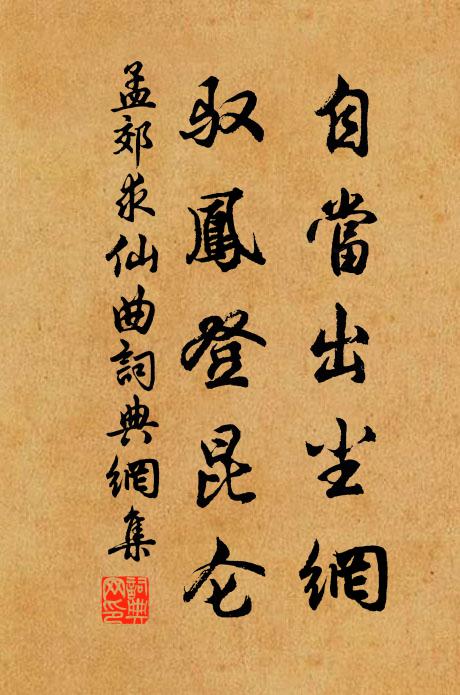 自當出尘網
驭鳳登昆仑
孟郊求仙曲詞典網集
詞典网印